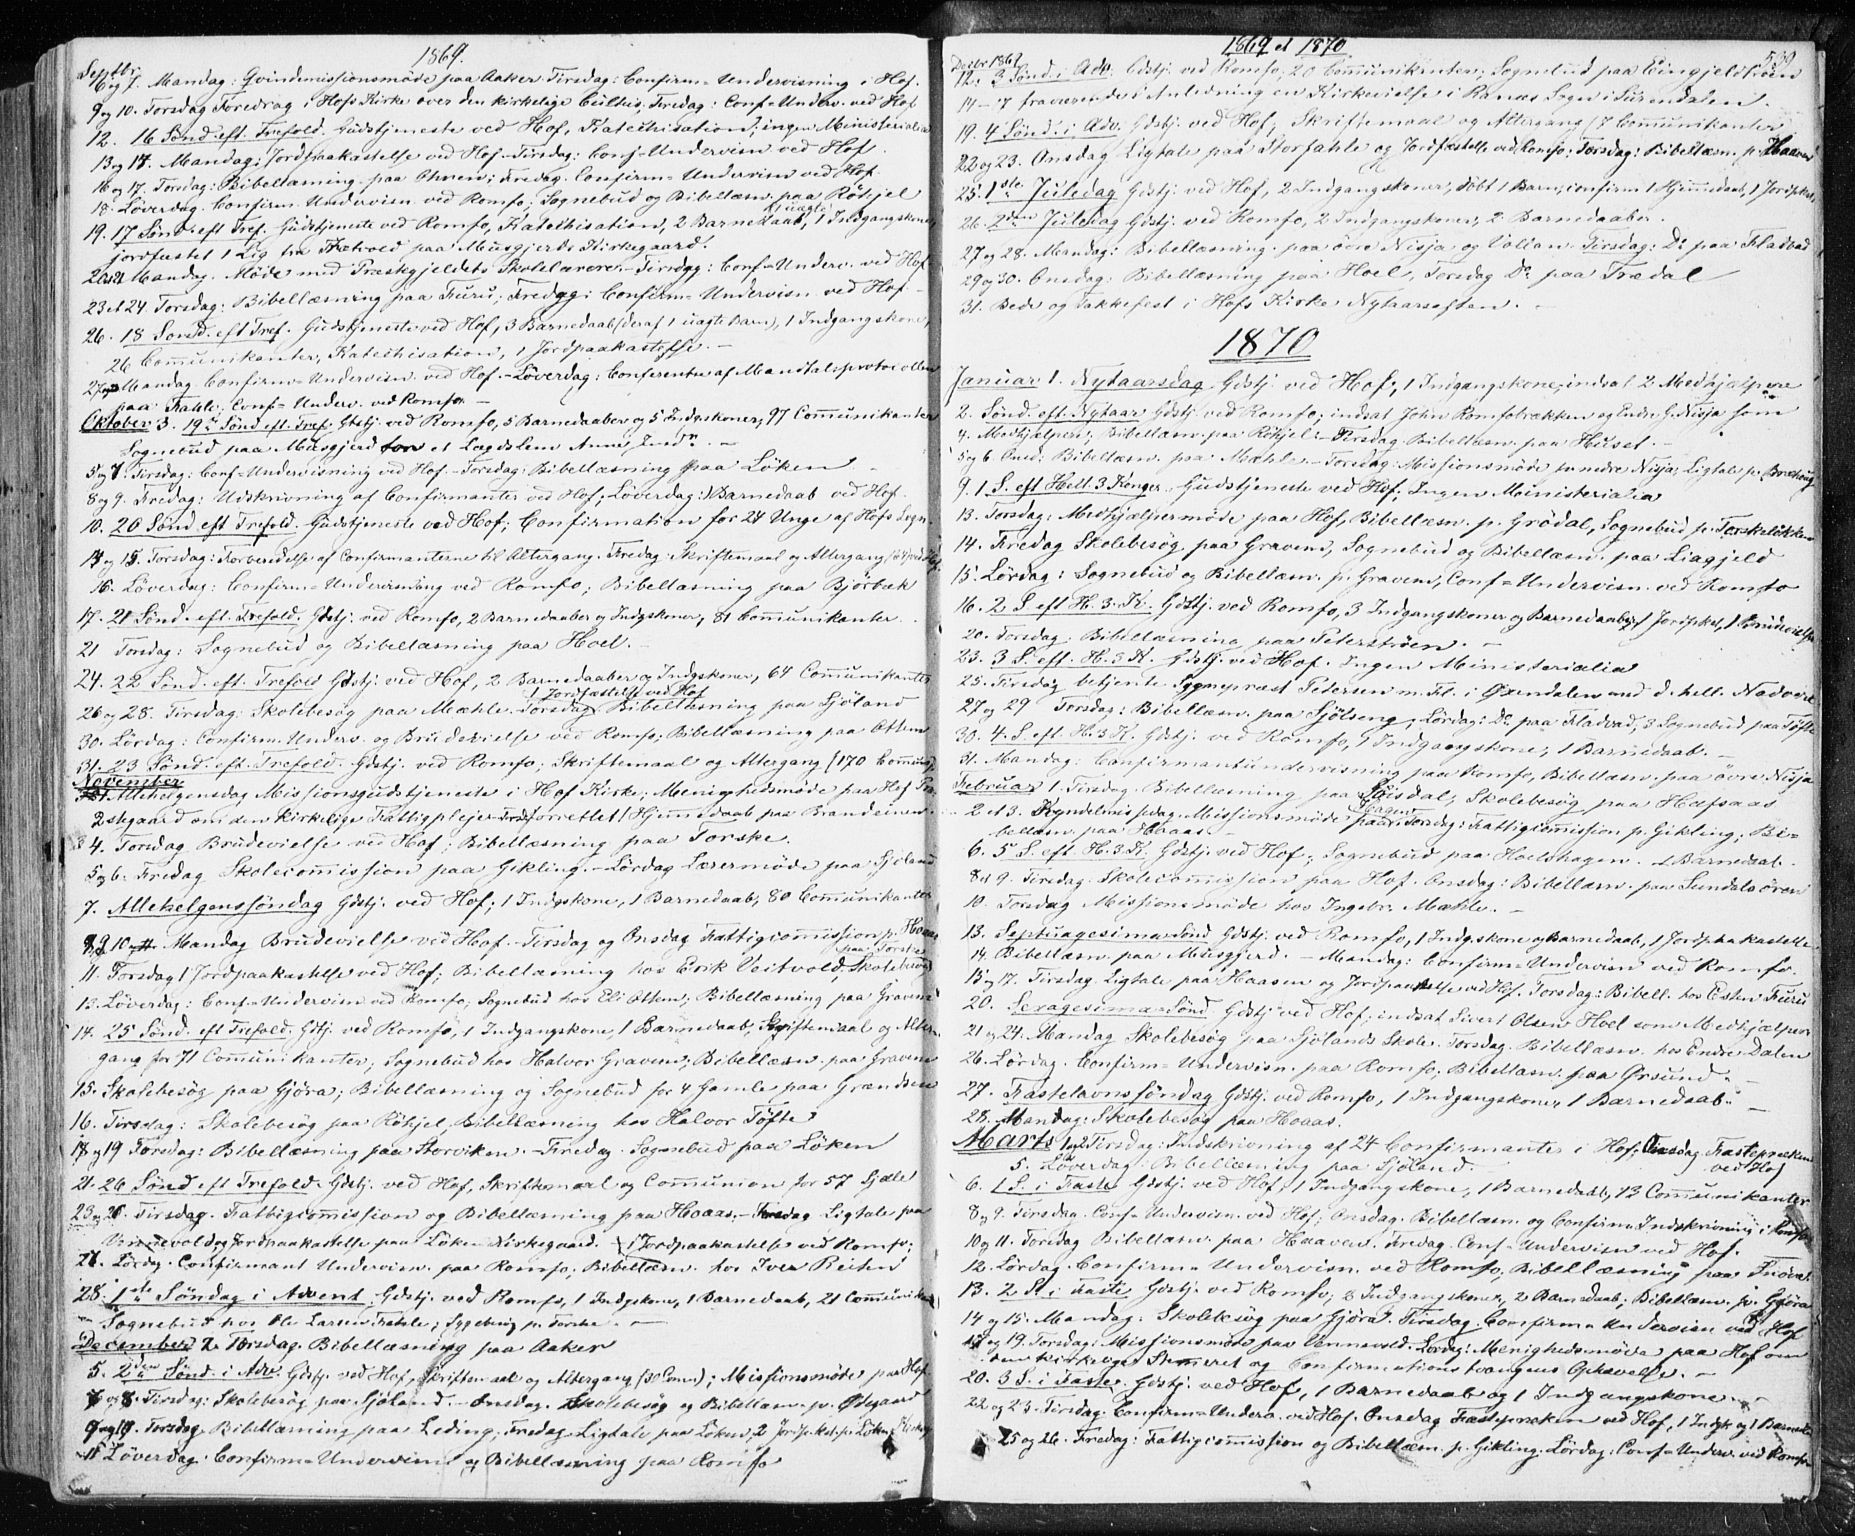 1869.
Septbr.
6 og 7. Mandag: Qvindemissionsmøde paa Aaker. Tirsdag: Confirm= Undervisning i Hof.
9 og 10. Torsdag Foredrag i Hofs Kirke over den kirkelige Cultus, Fredag. Conf=Underv. ved Hof
12. 16 Sønd. eft. Trefold. Gudstjeneste ved Hof, Katechisation; ingen Ministerialia
13 og 14. Mandag: Jordpaakastelse ved Hof. Tirsdag: Conf=Undervisn ved Hof.
16 og 17. Torsdag: Bibellæsning paa Ohren; Fredag. Confirm= Undervisn ved Hof.
18. Løverdag. Confirm. Undervisn ved Romfo; Sognebud og Bibellæsn. paa Röhjel
19. 17 Sønd. eft Tref. Gudstjeneste ved Romfo, Katechisation, 2 Barnedaab, 1 Indgangskone,
jordfæstet 1 Lig fra paa Musgjerds Kirkegaard.
Mandag. Møde med Præstegjeldets Skolelærere. Tirsdag: Conf=Underv. ved Hof
23 et 24 Torsdag: Bibellæsning paa Furu; Fredag: Confirm= Undervisn ved Hof
26. 18 Sønd. eft Tref. Gudstjeneste ved Hof, 3 Barnedaab (deraf 1 uægte Barn), 1 Indgangskone,
26 Communikanter, Katechisation, 1 Jordpaakastelse. —
Mandag Confirm= Undervisn. ved Hof. Løverdag: Conferentse af Mandtalsprotocollen
paa Fahle; Conf= Underv. ved Romfo. —
Oktober 3. 19de Sønd. eft Tref. Gdstj. ved Romfo, 5 Barnedaaber og 5 Indgskoner, 97 Communikanter
Sognebud paa Musgjerd et Lægdslem Anne
5 og 7. Tirsdag: Conf=Undervisning ved Hof. Torsdag: Bibellæsning paa Löken
8 og 9. Fredag: Udskrivning af Confirmanter ved Hof; Løverdag: 1 Barnedaab ved Hof.
10. 20 Sønd eft Trefold. Gudstjeneste ved Hof; Confirmation for 24 Unge af Hofs Sogn.
14 og 15. Torsdag: Forberedelse af Confirmanterne til Altergang. Fredag: Skriftemaal og Altergang
16. Løverdag: Confirm= Undervisning ved Romfo; Bibellæsning paa Bjørbæk
17. 21 Sønd. eft. Trefold. Gdstj. ved Romfo, 2 Barnedaaber og Indgskoner, 81 Communikanter.
21 Torsdag: Sognebud og Bibellæsning paa Hoel. —
24. 22 Sønd. eft. Trefold Gdstj. ved Hof, 2 Barnedaaber og Indgskoner, 64 Communikanter
1 Jordfæstelse ved Hof
26 og 28. Tirsdag: Skolebesøg paa Mæhle. Torsdag Bibellæsning paa Sjöland
30. Lördag: Confirm. Underv. og Brudevielse ved Romfo; Bibellæsning paa Ottem
31. 23 Sønd. eft. Trefold. Gdstj. ved Romfo; Skriftemaal og Altergang (170 Commun.)
November
Allehelgensdag Missionsgudstjeneste i Hof Kirke; Menighedsmøde paa Hof
om den kirkelige Fattigpleje forrettet 1 Hjemmedaab paa Brandeinen.
4. Torsdag Brudevielse ved Hof; Bibellæsning paa Torske.
5 og 6. Fredag Skolecommission paa Gikling. Lördag Lærermøde paa Sjöland
7. Allehelgenssøndag Gdstj. ved Hof; 1 Indgskone, 1 Barnedaab, 80 Communikanter
Mandag Brudevielse ved Hof. Tirsdag og Onsdag Fattigcommission p. Hoaas
paa Torske
11. Torsdag 1 Jordpaakastelse ved Hof; Bibellæsning hos Erik Veitvold, Skolebesøg
13. Løverdag: Conf=Undervisn ved Romfo; Sognebud hos Eli Ottem; Bibellæsning paa Gravem
14. 25 Sønd. eft Trefold. Gdstj. ved Romfo, 1 Indgangskone, 1 Barnedaab, Skriftemaal og Alter-
gang for 71 Communikanter, Sognebud hos Halvor Gravem; Bibellæsn. paa Gravem
15. Skolebesøg paa Gjöra; Bibellæsning og Sognebud for 4 Gamle paa Grændsen
16. Tirsdag: Skolebesøg paa Röhjel, Bibellæsning hos Halvor Töfte
18 og 19 Torsdag: Bibellæsning paa Storviken. Fredag. Sognebud paa Löken
21. 26 Sønd eft Trefold. Gdstj. ved Hof, Skriftemaal og Communion for 57 Sjæle
Tirsdag. Fattigcommission og Bibellæsning paa Hoaas. Torsdag Ligtale paa
Vennevold og Jordpaakastelse paa Löken Kirkegaard. 1 Jordpaakastelse ved Romfo;
Lördag. Confirmant Undervisn. paa Romfo; Bibellæsn. hos Iver Reiten
28. 1ste Søndag i Advent. Gdstj. ved Romfo, 1 Indgskone, 1 Barnedaab, 21 Communikant
Sognebud hos Ole Larsen Fahle; Sygebesøg p. Torske. —
December 2 Torsdag. Bibellæsning paa Aaker
5. 2den Sønd. i Adv. Gdstj. ved Hof, Skriftemaal og Altergang (30 Comm.); Missionsmøde paa Hof.
og 8. Tirsdag: Skolebesøg paa Sjöland. Onsdag. Skolebesøg og Bibellæsn. p. Ødegaard
9 og 10. Torsdag Bibellæsning paa Leding; Fredag Ligtale paa Löken, 2 Jordpkst. p. Löken Kirkeg
11 Løverdag. Confirm= Undervisn og Bibellæsning paa Romfo
1869 et 1870
539
Decbr 1869
12. 3 Sønd. i Adv. Gdstj. ved Romfo; 20 Communikanter; Sognebud paa
14-17 fraværende i Anledning en Kirkevielse i Ranæs Sogn i Surendalen.
19. 4 Sønd. i Adv. Gdstj. ved Hof; Skriftemaal og Altergang (7 Communikanter)
22 og 23. Onsdag Ligtale paa Storfahle og Jordfæstelse ved Romfo; Torsdag: Bibellæsn. p. Haaven
25. 1ste Juledag Gdstj. ved Hof, 2 Indgangskoner, döbt 1 Barn, confirm 1 Hjemmedaab, 1 Jordpkst.
26. 2den Juledag Gdstj. ved Romfo, 2 Indgangskoner, 2 Barnedaaber.
27 og 28. Mandag: Bibellæsning paa övre Nisja og Vollan. Tirsdag: Do paa Fladvad
29 og 30. Onsdag: Bibellæsning paa Hoel, Torsdag Do paa Trædal
31. Bede og Takkefest i Hofs Kirke Nytaarsaften. —
1870
Januar 1. Nytaarsdag Gdstj. ved Hof; 1 Indgangskone; indsat 2 Medhjælpere
2. Sønd. eft. Nytaar Gdstj. ved Romfo; indsat John Romfotrækken og Endre G. Nisja som
4. Medhjælpere; Bibellæsn. paa Röhjel. Tirsdag Bibellæsn. paa Huset. —
5 og 6 Onsd: Bibellæsn. paa Mæhle. Torsdag: Missionsmøde paa nedre Nisja; Ligtale p.
9. 1 S. eft Hell. 3 Konger. Gudstjeneste ved Hof, Ingen Ministerialia
13. Torsdag: Medhjælpermøde paa Hof, Bibellæsn. p. Grödal, Sognebud p. Torskelökken
14. Fredag Skolebesøg paa Gravem, Sognebud og Bibellæsn. paa Liagjeld
15. Lördag: Sognebud og Bibellæsn. p. Gravem, Conf=Undervisn. ved Romfo
16. 2 S. eft H. 3. K. Gdstj. ved Romfo, 3 Indgangskoner og Barnedaab, 1 Jordpkst, 1 Brudevielse
20. Torsdag Bibellæsning paa Peterströen. —
23. 3 S. eft. H. 3 K. Gdstj. ved Hof. Ingen Ministerialia
25. Tirsdag betjente Sognepræst Petersen m. Fl. i Øxendalen med d. hell. Nadvere
27 og 29 Torsdag: Bibellæsn. paa Sjölseng, Lördag: Do paa Fladvad, 3 Sognebud paa Töfte
30. 4. S. eft. H. 3 K. Gdstj. ved Romfo, 1 Indgangskone, 1 Barnedaab. —
31. Mandag: Confirmantundervisning paa Romfo, Bibellæsn. paa övre Nisja
Februar 1. Tirsdag. Bibellæsning paa Skolebesøg paa Hafsaas
2 et 3. Kyndelmisdag. Missionsmøde paa Torsdag: Fattigcommission p. Gikling; Bi-
bellæsn. paa Hoaas —
6. 5 S. eft H. 3 K. Gdstj. ved Hof; Sognebud paa Hoelshagen. 1 Barnedaab.
8 et 9. Tirsdag. Skolecommission paa Hof. Onsdag: Bibellæsn. paa Sundalsören
10. Torsdag Missionsmøde hos Ingebr. Mæhle. —
13. Septuagesima Sønd Gdstj. ved Romfo, 1 Indg.skone og Barnedaab, 1 Jordpaakastelse
14. Bibellæsn. paa Musgjerd. — Mandag: Confirm= Undervisn ved Romfo.
15 og 17. Tirsdag Ligtale paa Haasen og Jordpaakastelse ved Hof. Torsdag: Bibell. hos Esten Furu
20. Sexagesima Sønd. Gdstj. ved Hof; indsat Sivert Olsen Hoel som Medhjælper
21 og 24. Mandag Skolebesøg paa Sjölands Skole. Torsdag. Bibellæsn. hos Endre Dalen
26. Lördag. Confirm= Undervisn. paa Romfo; Bibellæsn. paa Ørsund. —
27. Fastelavnssöndag Gdstj. ved Romfo, 1 Indgangskone, 1 Barnedaab. —
28. Mandag: Skolebesøg paa Hoaas.
Marts 1 og 2 Tirsdag: Indskrivning af 24 Confirmanter i Hof; Onsdag Fasteprædiken
ved Hof
5. Løverdag. Bibellæsning paa Sjöland.
6. 1 S. i Faste Gdstj. ved Hof, 1 Indgangskone, 1 Barnedaab, 13 Communikanter
8 og 9. Tirsdag. Conf= Undervisn. ved Hof; Onsdag. Bibellæsn. og Confirm= Indskrivning i Romfo
10 og 11. Torsdag Bibellæsn. paa Haaven. Fredag. Conf= Undervisn ved Hof.
12. Lördag. Confirm= Undervisn. ved Romfo; Bibellæsning paa
13. 2 S. i Faste Gdstj. ved Romfo; 2 Indgangskoner, 2 Barnedaab; Bibellæsn. p. Gjöra
14 og 15. Mandag: Skolebesøg paa Gjöra. Tirsdag. Confirm= Undervisn ved Hof
og 19. Torsdag: Missionsmøde paa Vennevold. Lördag: Menighedsmøde paa Hof om
den kirkelige Stemmeret og Confirmationstvangens Ophævelse. —
20. 3 S. i Faste. Gdstj. ved Hof, 1 Barnedaab og 1 Indgangskone. —
22 og 23. Tirsdag. Confirm= Underv. ved Hof. Onsdag Fasteprædiken ved Hof, 1 Indgk og 1 Barned
25 og 26. Fredag: Fattigcommission og Bibellæsn. p. Gikling. Lördag: Conf=Underv. ved Romfo